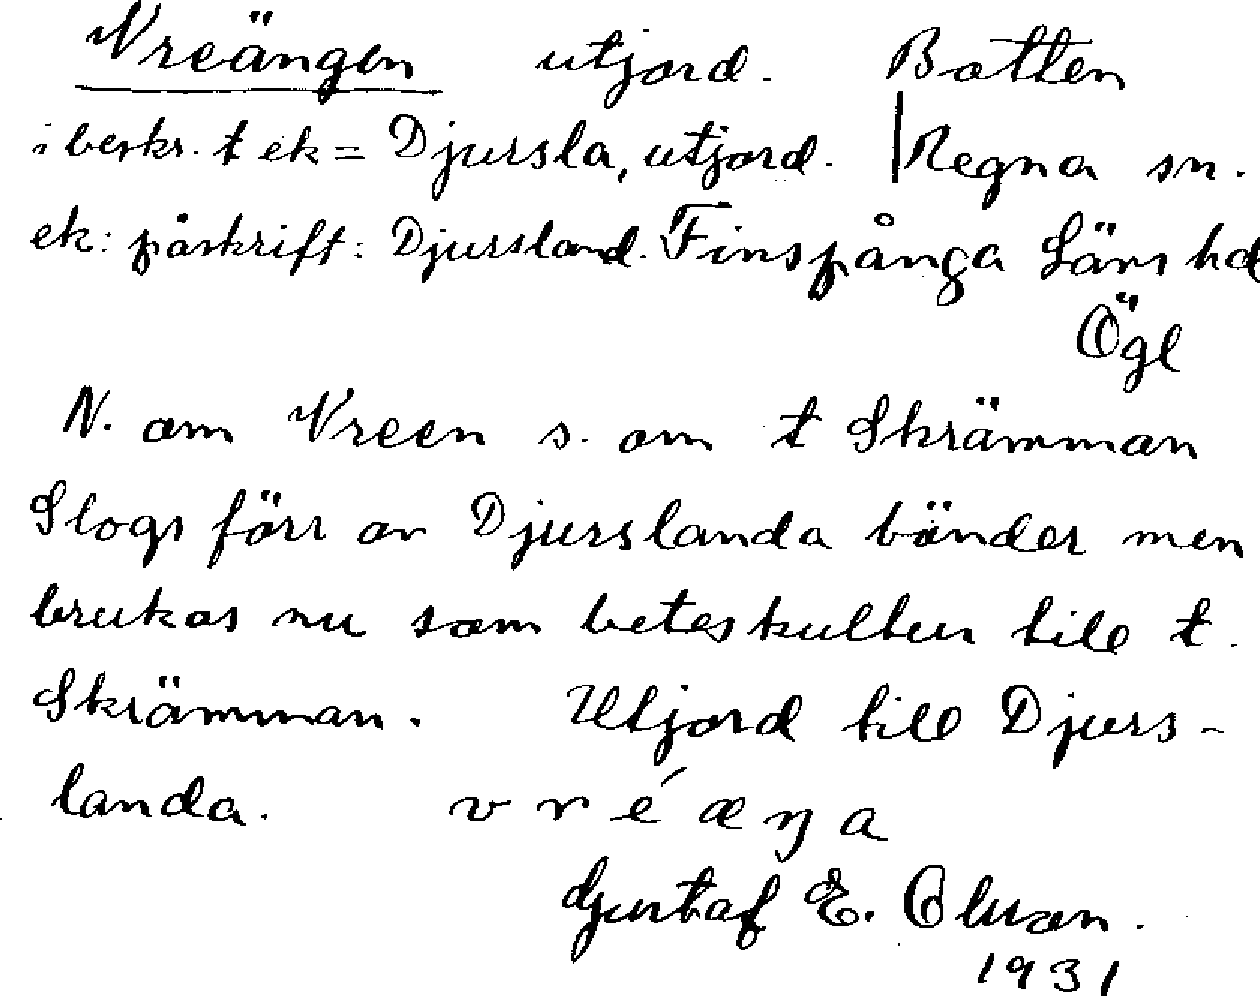 Vreängen utjord. Botten
i beskr. t ek = Djursla, utjord. Regna sn.
ek: påskrift: Djursland. Finspånga Läns hd
Ögl
N. om Vreen s. om t Skrämman
Slogs förr av Djurslanda bönder men
brukas nu som beteskultur till t.
Skrämman. Utjord till Djurs-
landa. v r é æ ŋ a
Gustaf E. Olsson.
1931